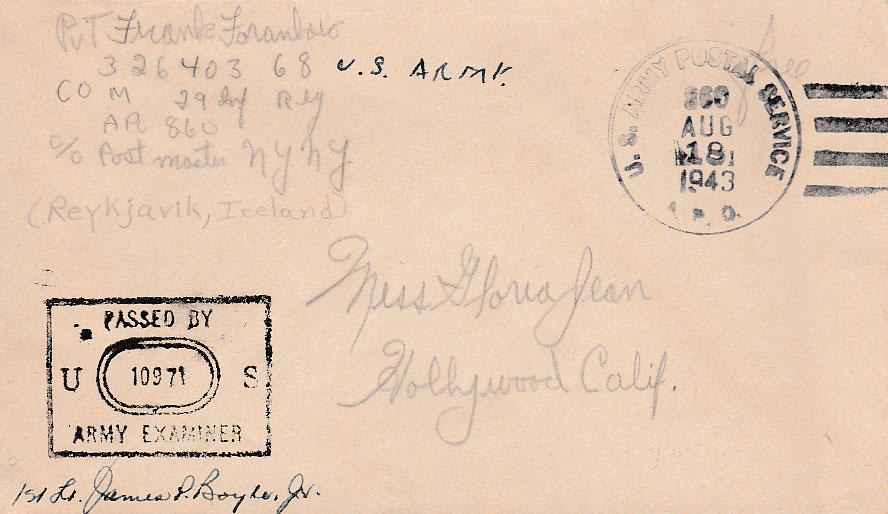 Pvt Frank
326403 68 U.S. ARMY.
CO M 29 Inf Reg
APO 860
c/o Postmaster NY NY
(Reykjavik, Iceland)
Free
U.S. ARMY POSTAL SERVICE
860
AUG
18
1943
A.P.O.
Miss Gloria Jean
Hollywood Calif.
PASSED BY
U 10971 S
ARMY EXAMINER
1st Lt. James P. Boyle, Jr.